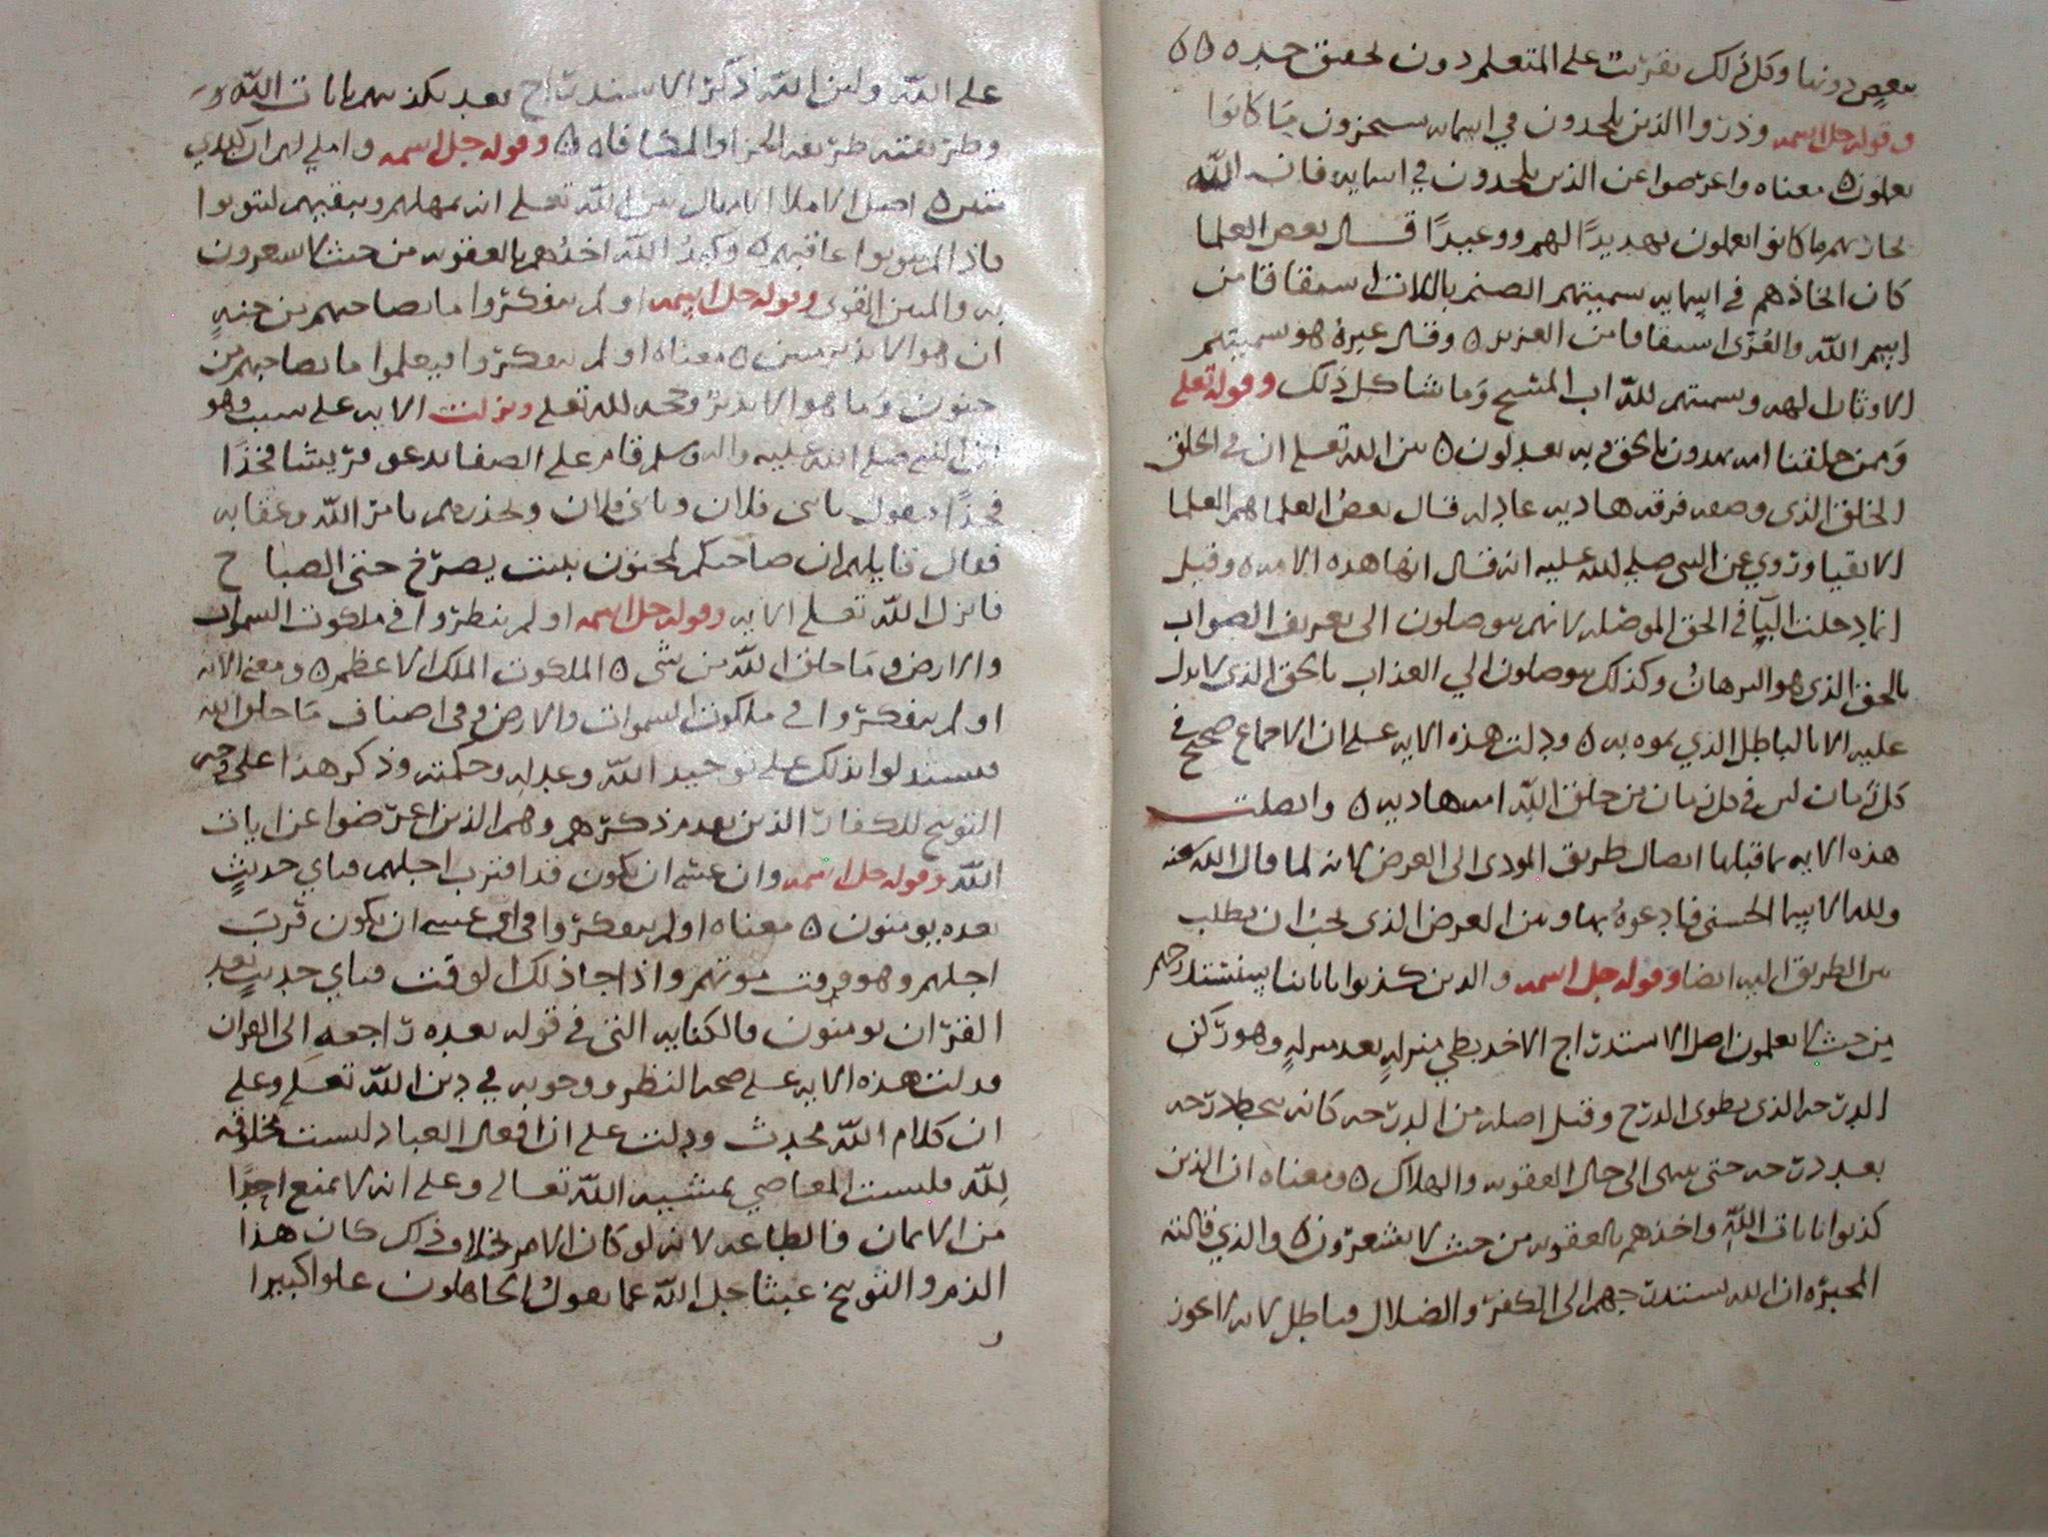 بعض دونها وكل ذلك تقريب على المتعلم دون تحقيق حده ه ه
وقوله جل اسمه وذروا الذين يلحدون في اسمايه سيجزون مَا كانوا
يعملون ه معناه واعرضوا عن الذين يلحدون في اسمايه فان الله
مجازيهم ما كانوا يعملون تهديدًا لهم ووعيدًا قال بعض العلما
كان الحادهم في اسمايه تسميتهم الصنم باللات اشتقاقا من
اسم الله والعُزّى اشتقاقا من العزيز ه وقال غيرهُ هو تسميتهم
الاوثان الهه وتسميتهم لله اب المسيح وَما شاكل ذلك وقوله تعلى
وَممن خلقنا امه يهدون بالحق وبه يعدلون ه بين الله تعلى ان في الخلق
الخلق الذي وصفه فرقه هاديه عادله قال بعضُ العلما هم العلما
الاتقيا وروي عن النبي صلى الله عليه انه قال انها هذه الامه ه وقيل
انما دخلت البآ في الحق الموصله لانهم يوصلون الى تعريف الصواب
بالحق الذي هو البرهانُ وكذلك يوصلون الي العذاب بالحق الذي لا يدل
عليه الا بالباطل الذي يموه به ه ودلت هذه الايه على ان الاجماع صحيح في
كل زمان ليس في كل زمان من خلق الله امه هاديه ه واتصلت
هذه الايه بما قبلها اتصال طريق المودى الى الغرض لانه لما قال الله عنه
ولله الاسما الحسنى فادعوهُ بها وبين الغرض الذي يجب ان يطلب
بين الطريق اليه ايضا وقوله جل اسمه والذين كذبوا باياتنا سنستدرجهم
من حيث لا يعلمون اصل الاستدراج الاخذ بطي منزلهٍ بعد منزلهٍ وهو ركن
الدرجه الذي يطوى الدرج وقيل اصله من الدرجه كانه ينحط درجه
بعد درجه حتى ينتهى الى حال العقوبه والهلاك ه ومعناه ان الذين
كذبوا بايات اللهِ واخذهم بالعقوبه من حيث لا يشعرون ه والذي قالته
المجبرّه ان الله يستدرجهم الى الكفر والضلال فباطل لانه لا يجوز
على اللّه ولبن الله ذكر الاستدراج بعد تكذيبهم بايات اللّه وَ
وطريقته طريقه الجزا والمكافاه ه وقوله جل اسمه واملي لهم ان كيدي
متين ه اصل الاملا الامهال بين الله تعلى انه يمهلهم ويبقيهم ليتوبوا
فاذا لم يتوبوا عاقبهم ه وكيدُ اللّه اخذُهم بالعقوبه من حيث لا يشعرون
به والمتين القوى وقوله جل اسمه اولم يتفكروا ما بصاحبهم من جنهٍ
ان هو الا نذير مبين ه معناه اولم يتفكروا فيعلموا ما بصاحبهم من
جنون وَما هو الا نذير وحجه لله تعلى ونزلت الايه على سبب وهو
ان النبي صلى الله عليه واله وسلم قام على الصفا يدعو قريشا فخذًا
فخذًا فيقول يا بني فلان ويا بني فلان ويحذرهم باس اللّه وعقابه
فقال قايلهم ان صاحبكم لمجنون بات يصرخ حتى الصباح
فانزل اللّه تعلى الايه وقوله جل اسمه اولم ينظروا في ملكوت السموات
والارض ومَا خلق اللّه من شى ه الملكوت الملك الاعظم ه ومعنى الايه
اولم يتفكروا في ملكوت السموات والارض وفي اصناف مَا خلق الله
فيستدلوا بذلك على توحيد اللّه وعدله وحكمته وذكر هذا على وجه
التوبيخ للكفار الذين تقدم ذكرهم وهم الذين اعرضوا عن ايات
اللّه وقوله جل اسمه وان عسى ان يكون قد اقترب اجلهم فباي حديثٍ
بعده يومنون ه معناه اولم يتفكروا في ان عسى ان يكون قربَ
اجلهم وهو وقت موتهم واذا جا ذلك الوقت فباي حديثٍ بعد
القران يومنون فالكنايه التي في قوله بعده راجعه الى القران
فدلت هذه الايه على صحه النظر ووجوبه في دين اللّه تعلى وعلى
ان كلام اللّه محدث ودلت على ان افعال العباد ليست مخلوقه
لِلّه فليست المعاصي بمشيه اللّه تعالى وعلى انه لا يمنع احدًا
من الايمان والطاعه لانه لو كان الامر بخلاف ذلك كان هذا
الذم والتوبيخ عبثا جل اللّه عما يقول الجاهلون علوا كبيرا
و